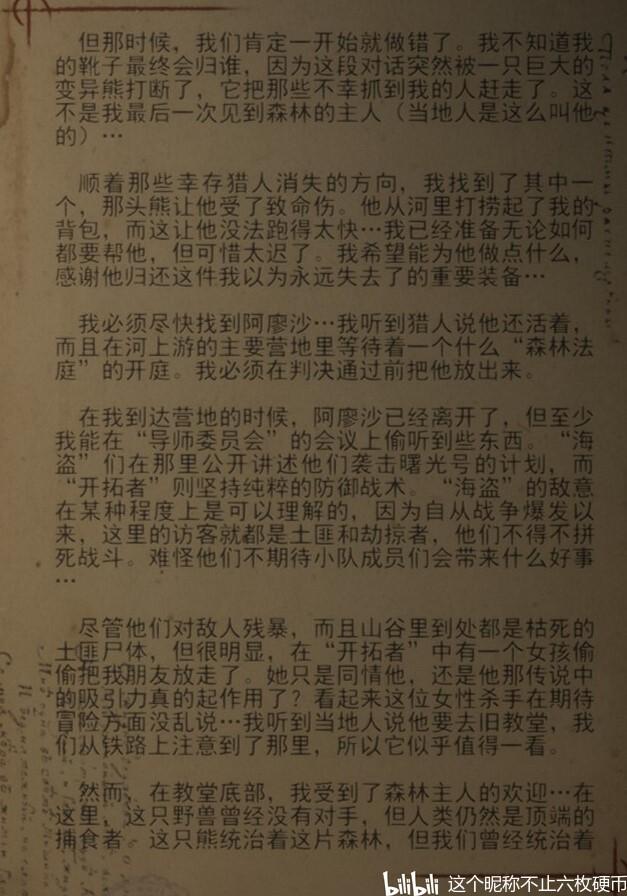 但那时候，我们肯定一开始就做错了。我不知道我
的靴子最终会归谁，因为这段对话突然被一只巨大的
变异熊打断了，它把那些不幸抓到我的人赶走了。这
不是我最后一次见到森林的主人（当地人是这么叫他
的）…
顺着那些幸存猎人消失的方向，我找到了其中一
个，那头熊让他受了致命伤。他从河里打捞起了我的
背包，而这让他没法跑得太快…我已经准备无论如何
都要帮他，但可惜太迟了。我希望能为他做点什么，
感谢他归还这件我以为永远失去了的重要装备…
我必须尽快找到阿廖沙…我听到猎人说他还活着，
而且在河上游的主要营地里等待着一个什么“森林法
庭”的开庭。我必须在判决通过前把他放出来。
在我到达营地的时候，阿廖沙已经离开了，但至少
我能在“导师委员会”的会议上偷听到些东西。“海
盗”们在那里公开讲述他们袭击曙光号的计划，而
“开拓者”则坚持纯粹的防御战术。“海盗”的敌意
在某种程度上是可以理解的，因为自从战争爆发以
来，这里的访客就都是土匪和劫掠者，他们不得不拼
死战斗。难怪他们不期待小队成员们会带来什么好事
…
尽管他们对敌人残暴，而且山谷里到处都是枯死的
土匪尸体，但很明显，在“开拓者”中有一个女孩偷
偷把我朋友放走了。她只是同情他，还是他那传说中
的吸引力真的起作用了？看起来这位女性杀手在期待
冒险方面没乱说…我听到当地人说他要去旧教堂，我
们从铁路上注意到了那里，所以它似乎值得一看。
然而，在教堂底部，我受到了森林主人的欢迎…在
这里，这只野兽曾经没有对手，但人类仍然是顶端的
捕食者。这只熊统治着这片森林，但我们曾经统治着
bilibili 这个昵称不止六枚硬币